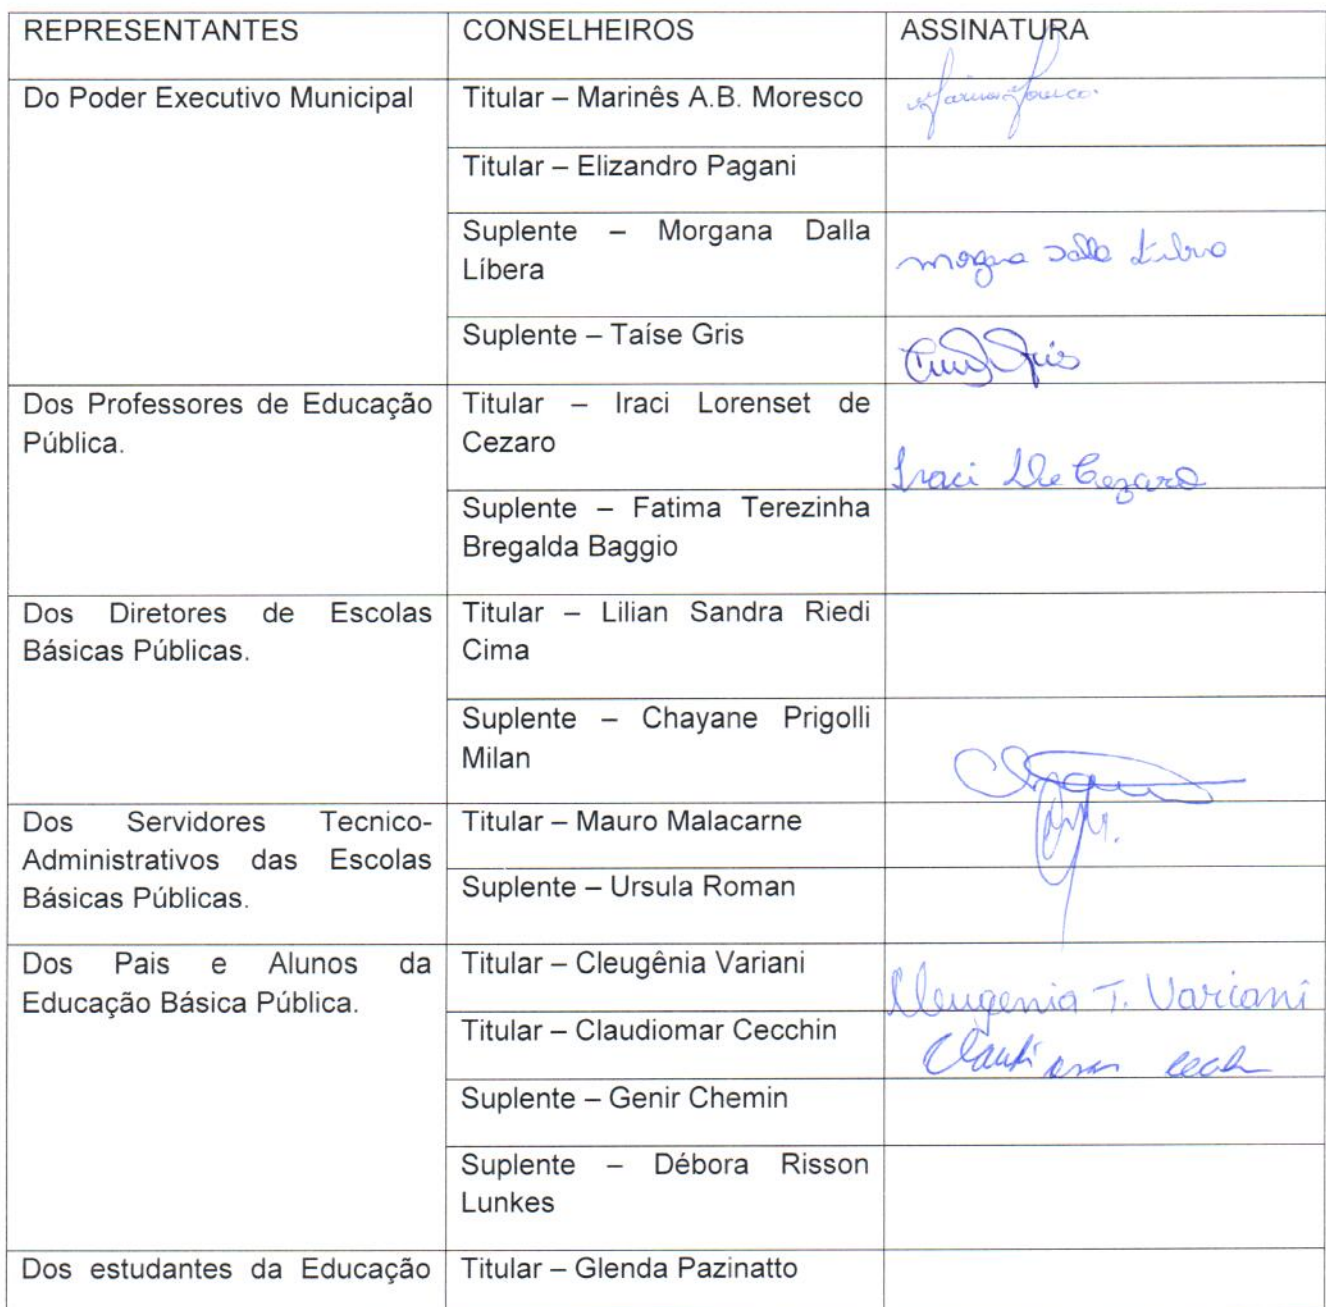 REPRESENTANTES CONSELHEIROS ASSINATURA
Do Poder Executivo Municipal Titular – Marinês A.B. Moresco
Titular – Elizandro Pagani
Suplente – Morgana Dalla
Líbera
Suplente – Taíse Gris
Gris
Dos Professores de Educação
Pública.
Titular – Iraci Lorenset de
Cezaro
Iraci De Cezaro
Suplente – Fatima Terezinha
Bregalda Baggio
Dos Diretores de Escolas
Básicas Públicas.
Titular – Lilian Sandra Riedi
Cima
Suplente – Chayane Prigolli
Milan
Dos Servidores Tecnico-
Administrativos das Escolas
Básicas Públicas.
Titular – Mauro Malacarne
Suplente – Ursula Roman
Dos Pais e Alunos da
Educação Básica Pública.
Titular – Cleugênia Variani
Cleugenia T. Variani
Titular – Claudiomar Cecchin
Suplente – Genir Chemin
Suplente – Débora Risson
Lunkes
Dos estudantes da Educação Titular – Glenda Pazinatto